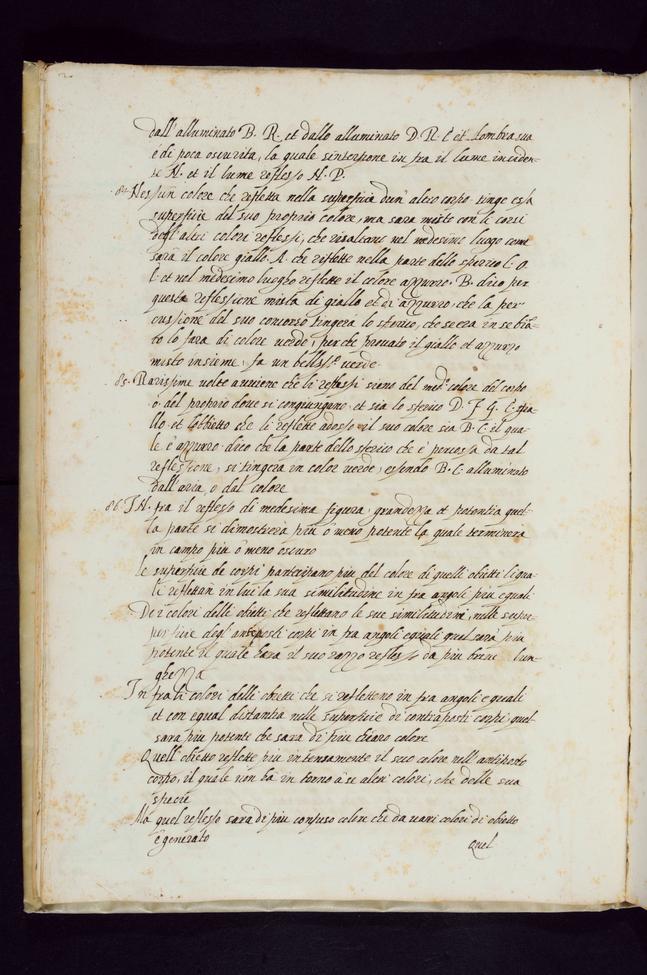 dall'alluminato B. R. et dallo alluminato D. R. C et l'ombra sua
è di poca oscurita, la quale s'interpone in fra il lume inciden-
te N. et il lume reflesso N. P.
84. Nessun colore che refletta nella superficia d'un' altro corpo tinge essa
superficie del suo proprio colore, ma sara misto con li corsi
degl'altri colori reflessi, che risaltano nel medesimo luogo come
sarà il colore giallo. A. che reflette nella parte dello sperico C. O.
E et nel medesimo luogho reflette il colore azzurro. B. dico per
questa reflessione mista di giallo et di azzurro, che la per
cussione del suo concorso tingera lo sperico, che s'era in se biã-
to lo fara di colore uerde, perche prouato il giallo et azzurro
misto insieme, fa un bellissº uerde
85. Rarissime uolte auuiene che li reflessi siano del medº colore del corpo
o del proprio doue si congiungano et sia lo sferico D. F G. E. gia
llo et l'obbietto che li reflette adosso il suo colore sia B. C. il qua-
le è azzurro dico che la parte dello sferico che è percossa da tal
reflessione, si tingera in color uerde, essendo B. C alluminato
dall'aria, o dal colore
86 In fra il reflesso di medesima figura, grandezza et potentia quel-
la parte si dimostrerà piu o meno potente la quale terminera
in campo piu o meno oscuro
le superficie de corpi partecipano piu del colore di quelli obietti li qua-
li reflettan in lui la sua similitudine in fra angoli piu equali
De i colori delli obietti che reflettano le sue similitudini, nelle supre-
perficie degl'anteposti corpi in fra angoli equali quel sarà piu
potente il quale harà il suo razzo reflesso da piu breue lun-
ghezza
In fra li colori delli obietti che si reflettono in fra angoli equali
et con egual distantia nelle superficie di contraposti corpi, quel
sara piu potente che sara di piu chiaro colore
Quell'obietto reflette piu intensamente il suo colore nell'antiposto
corpo, il quale non ha in torno à se altri colori, che delle sua
spacie
Ma quel reflesso sara di piu confuso colore che da uari colori di obietto
è generato
quel